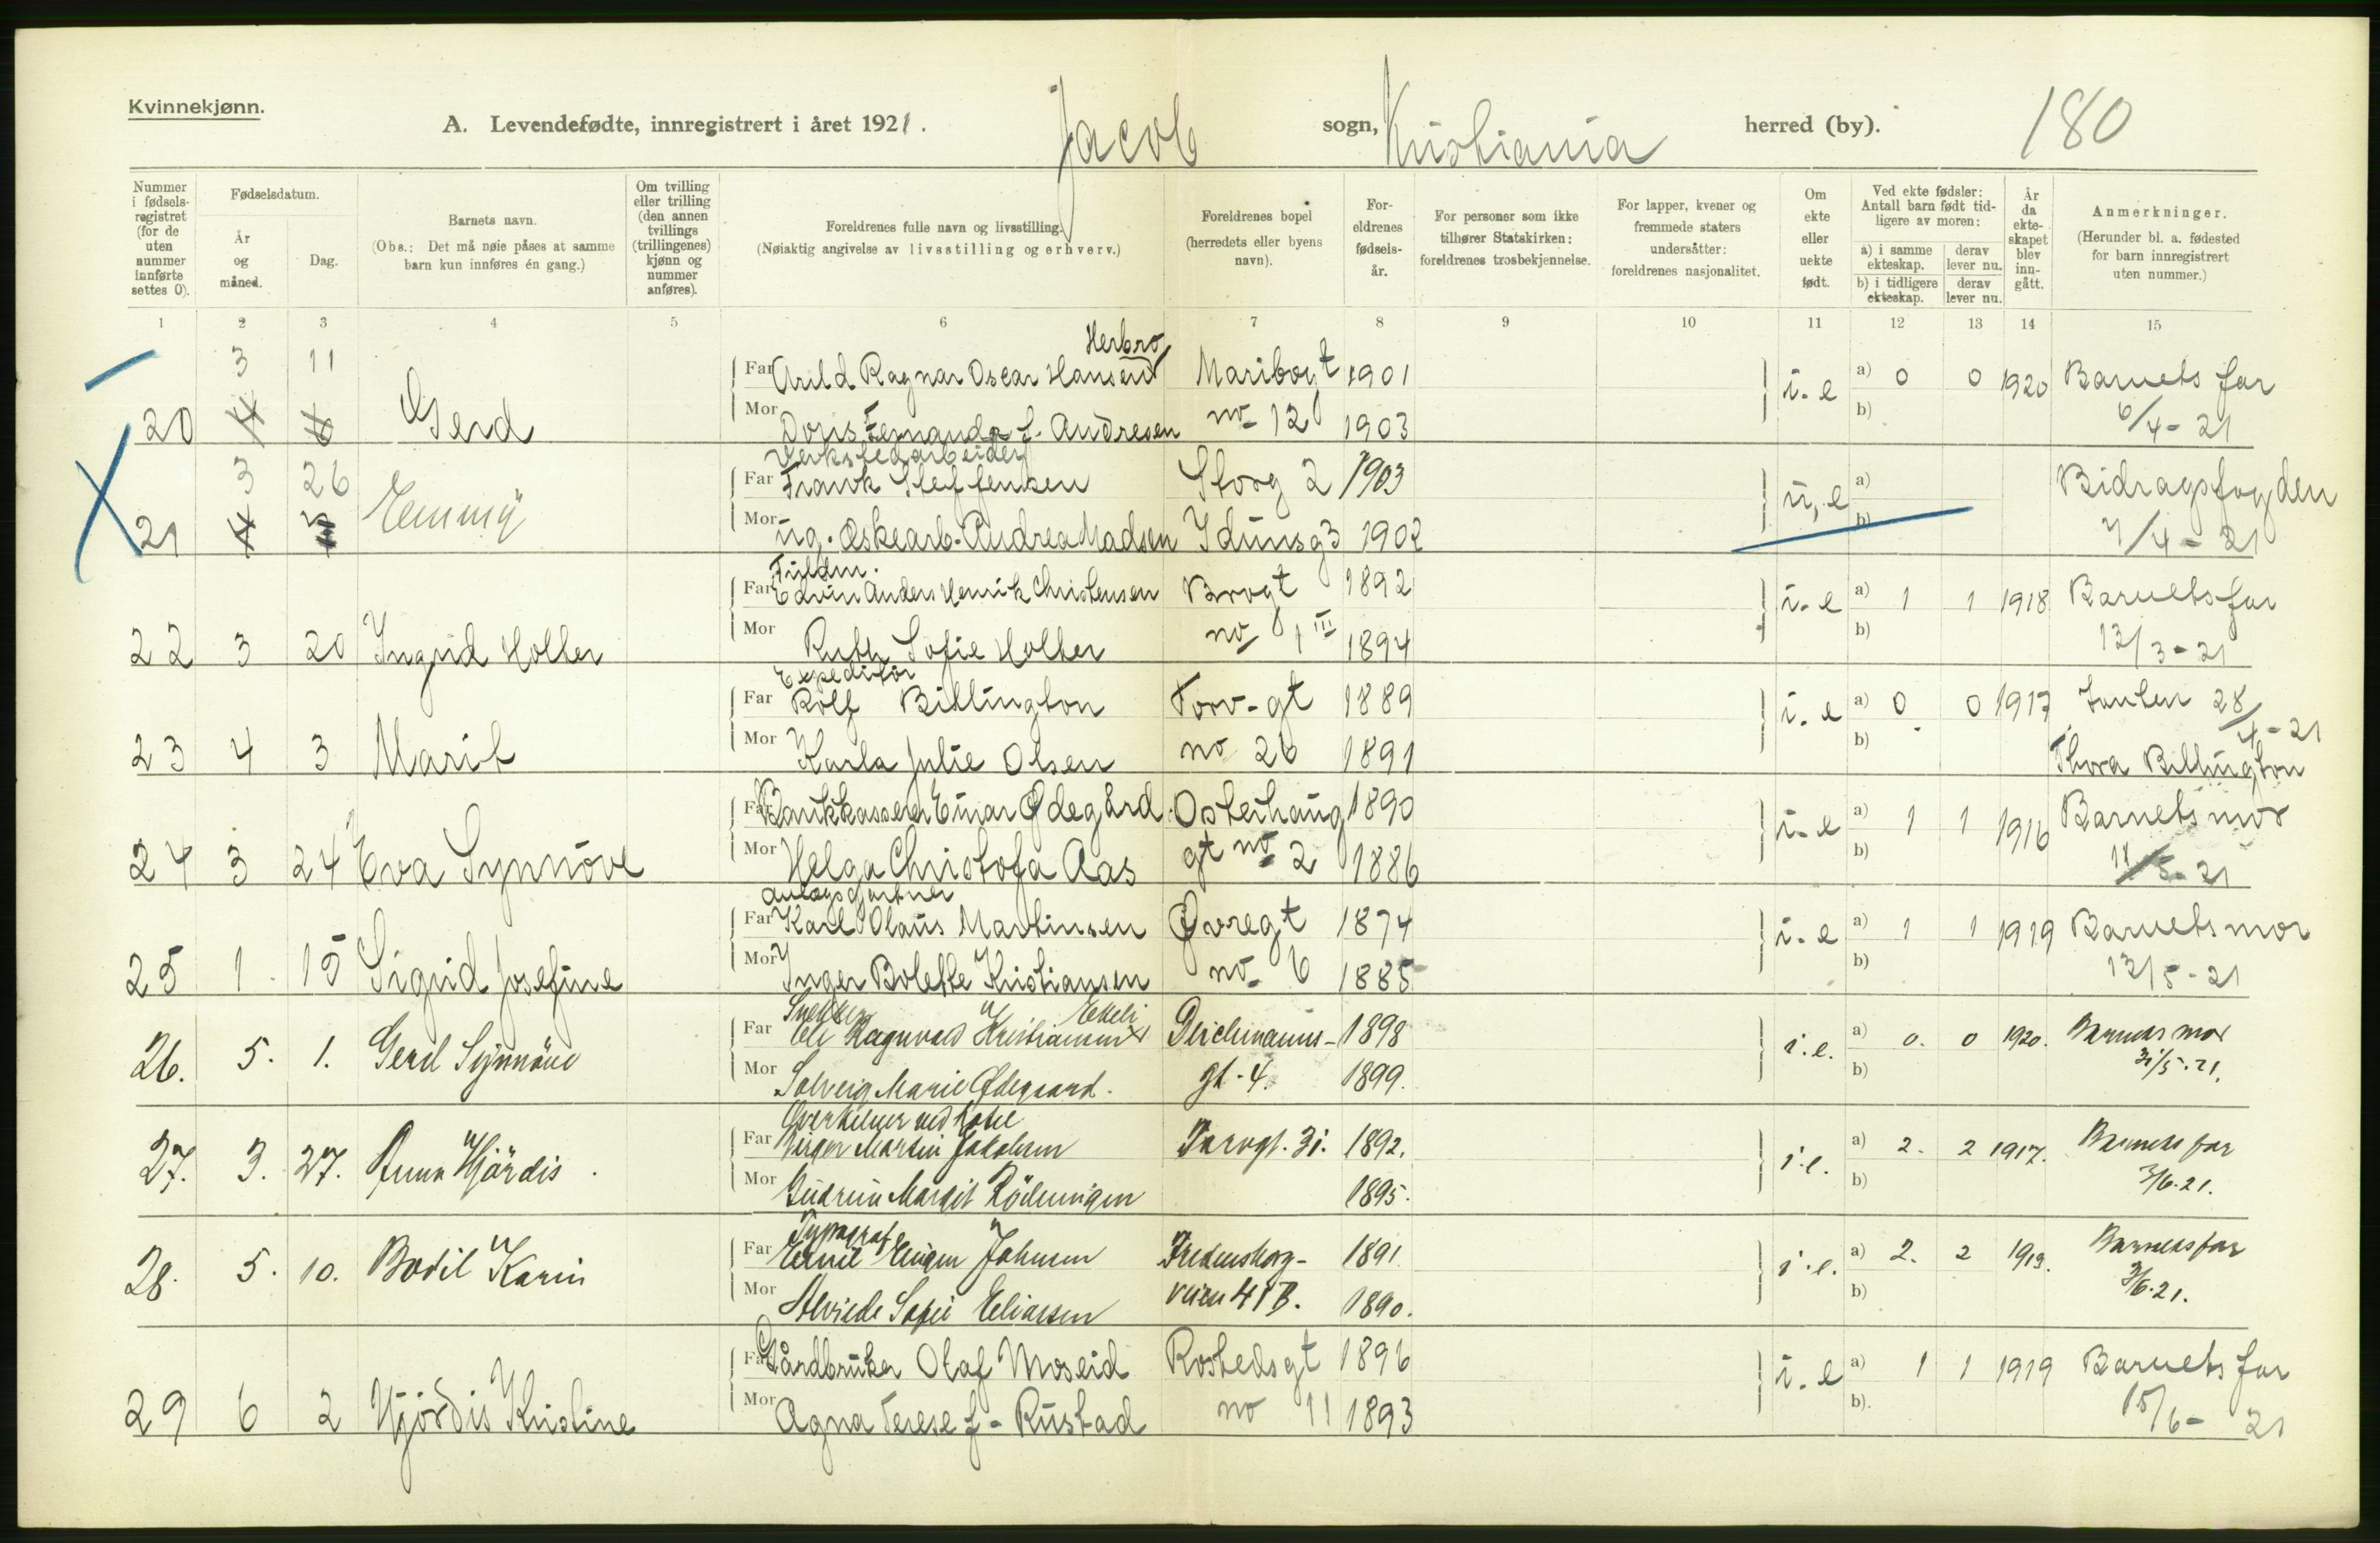 Kvinnekjønn.
A. Levendefødte, innregistrert i året 1921. Jacob sogn, Kristiania herred (by). 180
Nummer i fødselsregistret (for de uten nummer innførte settes 0).
Fødselsdatum.
År og måned.
Dag.
Barnets navn.
(Obs.: Det må nøie påses at samme barn kun innføres én gang.)
Om tvilling eller trilling (den annen tvillings (trillingenes) kjønn og nummer anføres).
Foreldrenes fulle navn og livsstilling.
(Nøiaktig angivelse av livsstilling og erhverv.)
Foreldrenes bopel (herredets eller byens navn).
Foreldrenes fødselsår.
For personer som ikke tilhører Statskirken: foreldrenes trosbekjennelse.
For lapper, kvener og fremmede staters undersåtter: foreldrenes nasjonalitet.
Om ekte eller uekte født.
Ved ekte fødsler: Antall barn født tidligere av moren:
a) i samme ekteskap. derav lever nu.
b) i tidligere ekteskap. derav lever nu.
År da ekteskapet blev inngått.
Anmerkninger.
(Herunder bl. a. fødested for barn innregistrert uten nummer.)
1 2 3 4 5 6 7 8 9 10 11 12 13 14 15
Herbro
3 11 Far Arild Ragnar Oscar Hansen Maribogt 1901 i. e a) 0 0 1920 Barnets far
20 4 6 Gerd Mor Doris Fernanda f. Andresen no 12 1903 b) 6/4-21
Verkstedarbeider
3 26 Far Frank Steffensen Storg 2 1903 u, e a) Bidragsfogden
21 4 Emmy Mor ug. Æskearb. Andrea Madsen Idunsg 3 1902 b) 7/4-21
Fuldm.
Far Edvin Anders Henrik Christensen Brogt 1892 i. e a) 1 1 1918 Barnets far
22 3 20 Ingrid Holter Mor Ruth Sofie Holter no 1 III 1894 b) 12/3-21
Expeditør
Far Rolf Billington Torv-gt 1889 i. e a) 0 0 1917 Tanten 28/4-21
23 4 3 Marit Mor Karla Julie Olsen no 26 1891 b) Thora Billington
Far Bankkasserer Einar Ødegård Osterhaug 1890 i. e a) 1 1 1916 Barnets mor
24 3 24 Eva Synnöve Mor Helga Christofa Aas gt no 2 1886 b) 11/5-21
Anlægsgartner
Far Karl Olaus Martinsen Øvregt 1874 i. e a) 1 1 1919 Barnets mor
25 1 15 Sigrid Josefine Mor Inger Bolette Kristiansen no 6 1885 b) 12/5-21
Snekker Ekeli
Far Ole Ragnvald Kristiansen Deichmanns- 1898 i.e. a) 0. 0 1920. Barnets mor
26. 5. 1. Gerd Synnöve Mor Solveig Marie Ødegaard. gt. 4. 1899. b) 31/5.21.
Overkelner ved hotel
Far Birger Martin Jakobsen Torvgt. 31. 1892. i.e. a) 2. 2 1917. Barnets far
27. 3. 27. Anna Hjördis Mor Gudrun Margit 1895. b) 3/6.21.
Typograf
Far Emil Johnsen Fredensborg- 1891 i.e. a) 2. 2 1913. Barnets far
28. 5. 10. Bodil Karin Mor Alvilde Sofie Eliassen veien 41 B. 1890. b) 3/6.21.
Far Gårdbruker Olaf Moseid Rostedsgt 1896 i. e a) 1 1 1919 Barnets far
29 6 2 Hjördis Kristine Mor Agna Terese f- Rustad no 11 1893 b). 15/6-21